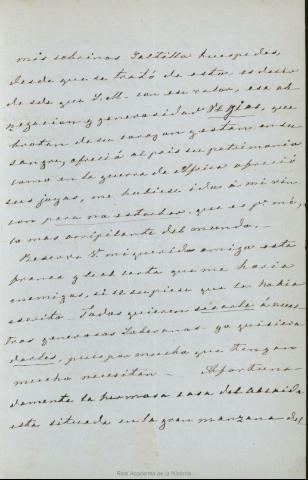 mis sobrinos Saltillo huespedes,
desde que se trató de esto, es decir
desde que S. M. con ese valor, ese ab-
negacion y generosidad Regias, que
brotan de su corazon y estan en su
sangre, ofreció al pais su patrimonio
como en la guerra de Africa ofreció
sus joyas, me hubiese ido á mi rin-
con para no estorbar, que es pª mi,
lo mas
del mundo. -
Reserve V. mi querido amigo esta
franca y leal carta que me haria
enemigos, si se supiese que la habia
escrito. Todos quieren sacarle á nues-
tros generosos Soberanos yo quisiera
darles, pues por mucho que tengan
mucho necesitan. - Afortuna-
damente la hermosa casa del
está situada en la gran manzana del
Real Academia de la Historia